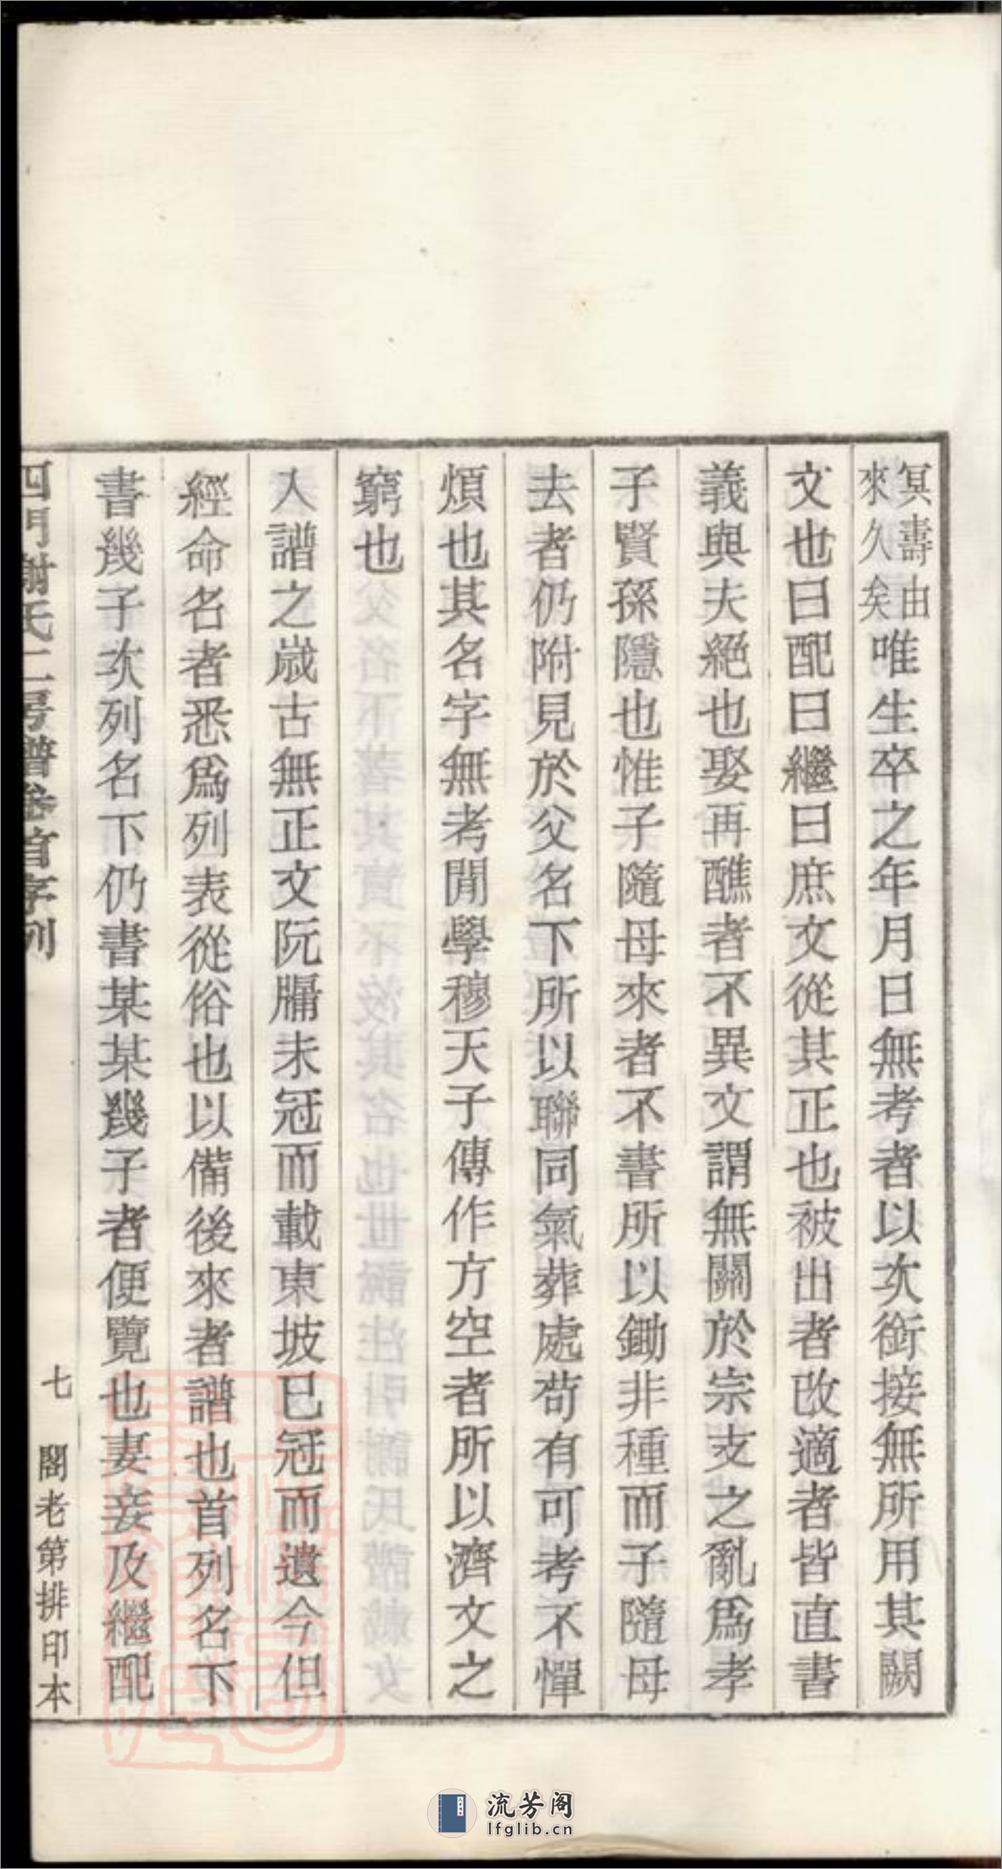 冥壽由
來久矣
唯生卒之年月日無考者以次銜接無所用其闕
文也曰配曰繼曰庶文從其正也被出者改適者皆直書
義與夫絕也娶再醮者不異文謂無關於宗支之亂爲孝
子賢孫隱也惟子隨母來者不書所以鋤非種而子隨母
去者仍附見於父名下所以聯同氣葬處苟有可考不憚
煩也其名字無考閒學穆天子傳作方空者所以濟文之
窮也
入譜之歲古無正文阮牖未冠而載東坡已冠而遺今但
經命名者悉爲列表從俗也以備後來者譜也首列名下
書幾子次列名下仍書某某幾子者便覽也妻妾及繼配
四門謝氏二房譜卷首序列
七
閣老第排印本
流芳阁
lfglib.cn